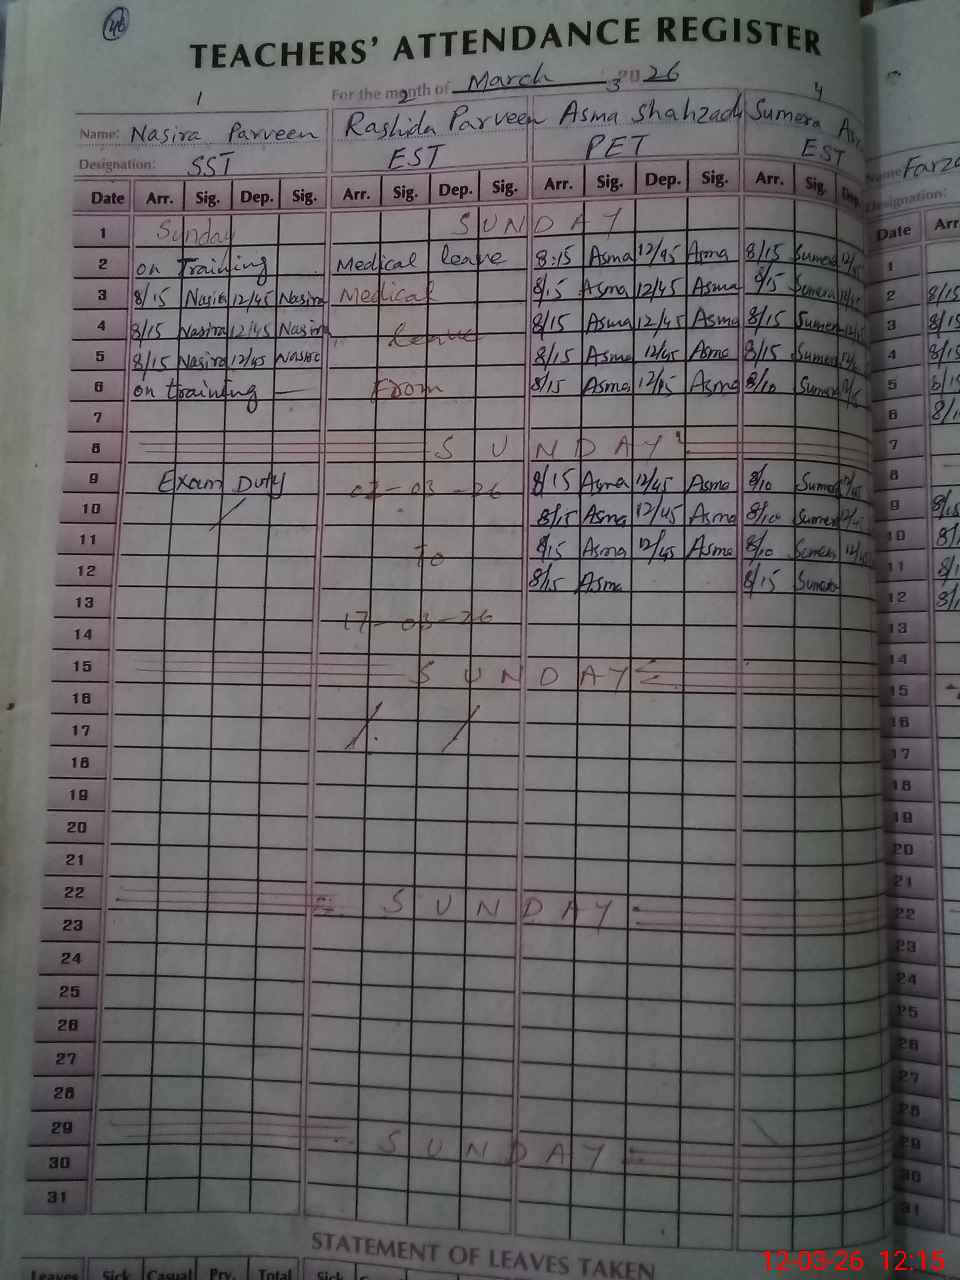 46
TEACHERS' ATTENDANCE REGISTER
For the month of March 2026
1 2 3 4
Name: Nasira Parveen Rashida Parveen Asma Shahzadi Sumera
Designation: SST EST PET EST
Date Arr. Sig. Dep. Sig. Arr. Sig. Dep. Sig. Arr. Sig. Dep. Sig. Arr. Sig. Dep.
1 Sunday SUNDAY
2 on Training Medical leave 8:15 Asma 12/45 Asma 8/15 Sumera
3 8/15 Nasira 12/45 Nasira Medical 8/15 Asma 12/45 Asma 8/15 Sumera
4 8/15 Nasira 12/45 Nasira leave 8/15 Asma 12/45 Asma 8/15 Sumera
5 8/15 Nasira 12/45 Nasira 8/15 Asma 12/45 Asma 8/15 Sumera
6 on training — From 8/15 Asma 12/45 Asma 8/10 Sumera
7
8 SUNDAY
9 Exam Duty 02-03-26 8/15 Asma 12/45 Asma 8/10 Sumera 12/45
10 8/15 Asma 12/45 Asma 8/10 Sumera
11 To 8/15 Asma 12/45 Asma 8/10 Sumera
12 8/15 Asma 8/15 Sumera
13 17-03-26
14
15 SUNDAY
16
17
18
19
20
21
22 SUNDAY
23
24
25
26
27
28
29 SUNDAY
30
31
STATEMENT OF LEAVES TAKEN
Leaves Sick Casual Prv. Total Sick
Name
Designation:
Date Arr
1
2 8/15
3 8/15
4 8/15
5 8/15
6
7
8
9 8/15
10
11
12
13
14
15
16
17
18
19
20
21
22
23
24
25
26
27
28
29
30
31
12-03-26 12:15